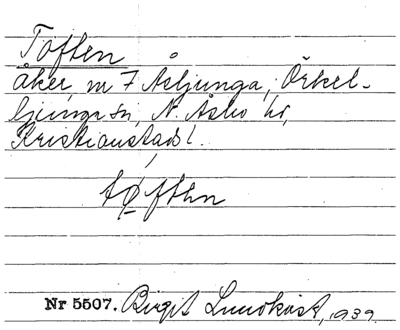 Toften
Åker, m 7 Åsljunga, Örkel-
ljunga sn, N. Åsbo hd,
Kristianstads l.
tøften
Nr 5507. Birgit Lundkvist, 1939